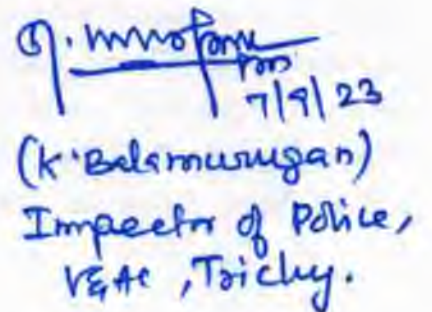 7/9/23
(K. Balamurugan)
Inspector of Police,
V&AC, Trichy.